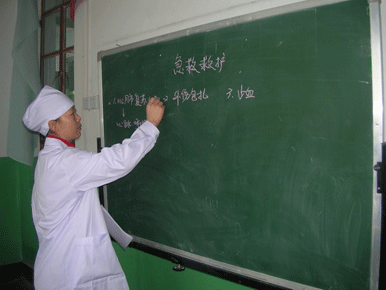 急救救护
1.心肺复苏 2.外伤包扎 3.止血